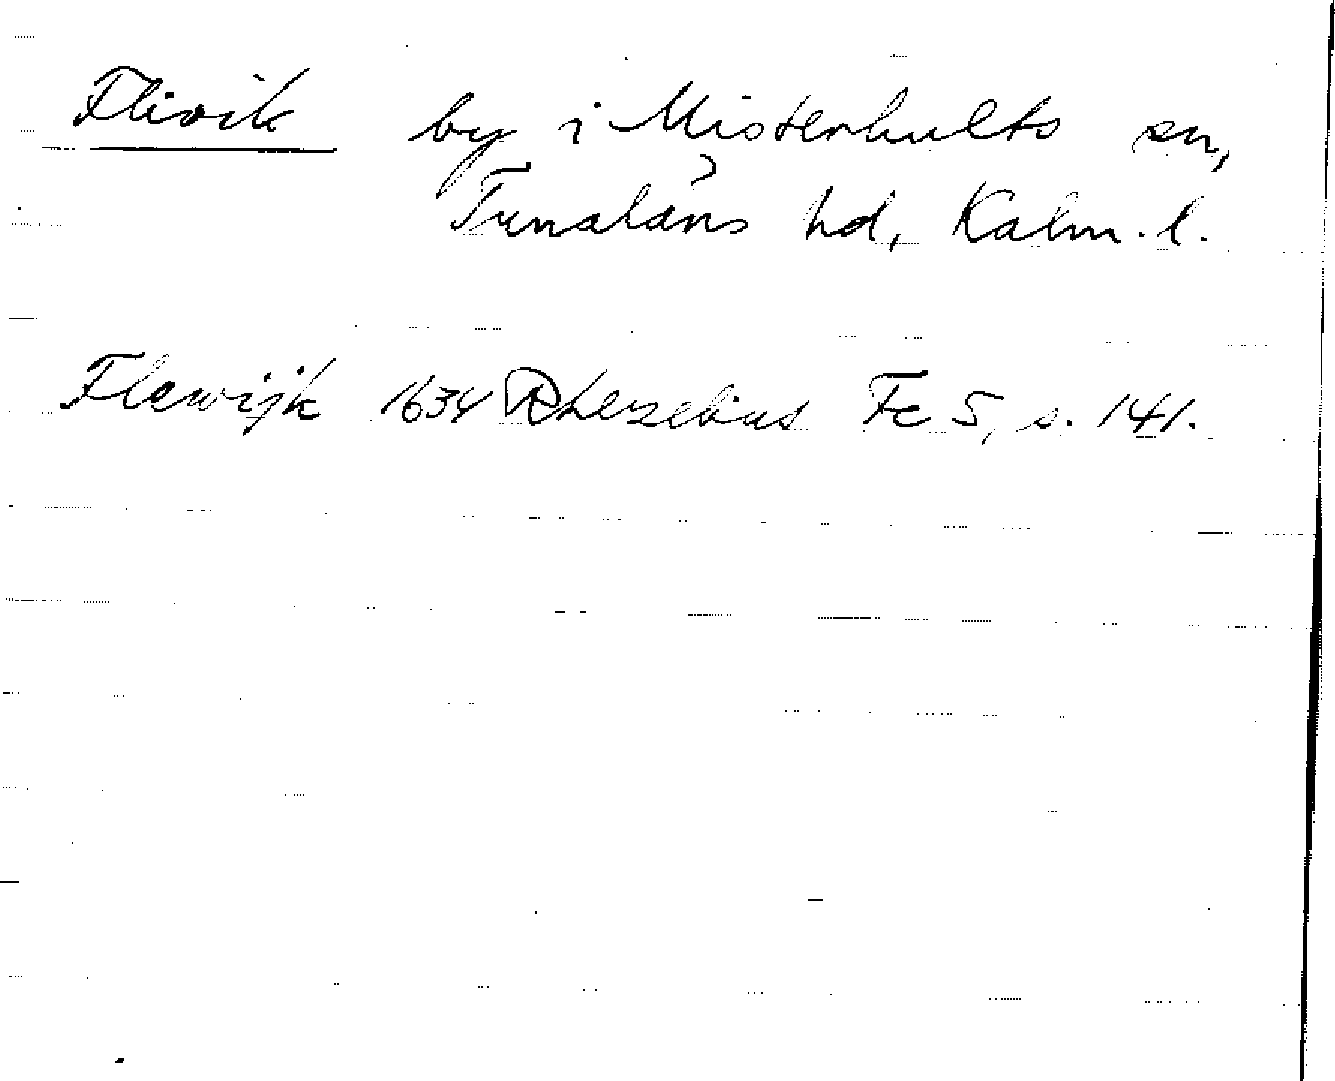 Flivik by i Misterhults sn,
Tunaläns hd, Kalm. l.
Flewijk 1634 Rhezelius Fc 5, s. 141.